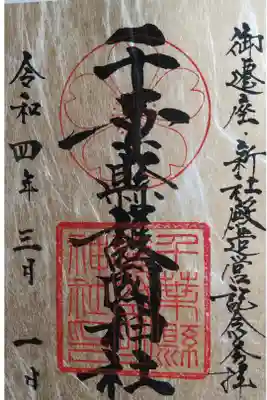 御遷座・新社殿造営記念参拝
千葉縣護國神社
令和四年三月一日
千葉縣
神社印